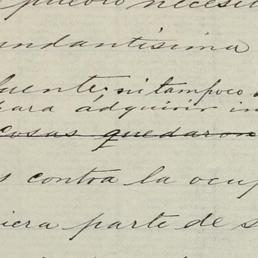 pueblo necesi
undantísima
fuente; ni tampoco
para adquirir in
cosas quedaron
s contra la ocup
iera parte de s